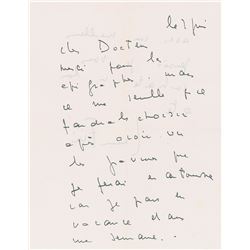 le 7 juin
cher Docteur
merci pour les
épigraphes.. mais
ce me semble que
faudrait choisir
après avoir vu
les gravures que
je ferai en automne
car je pars en
vacance dans
une semaine..